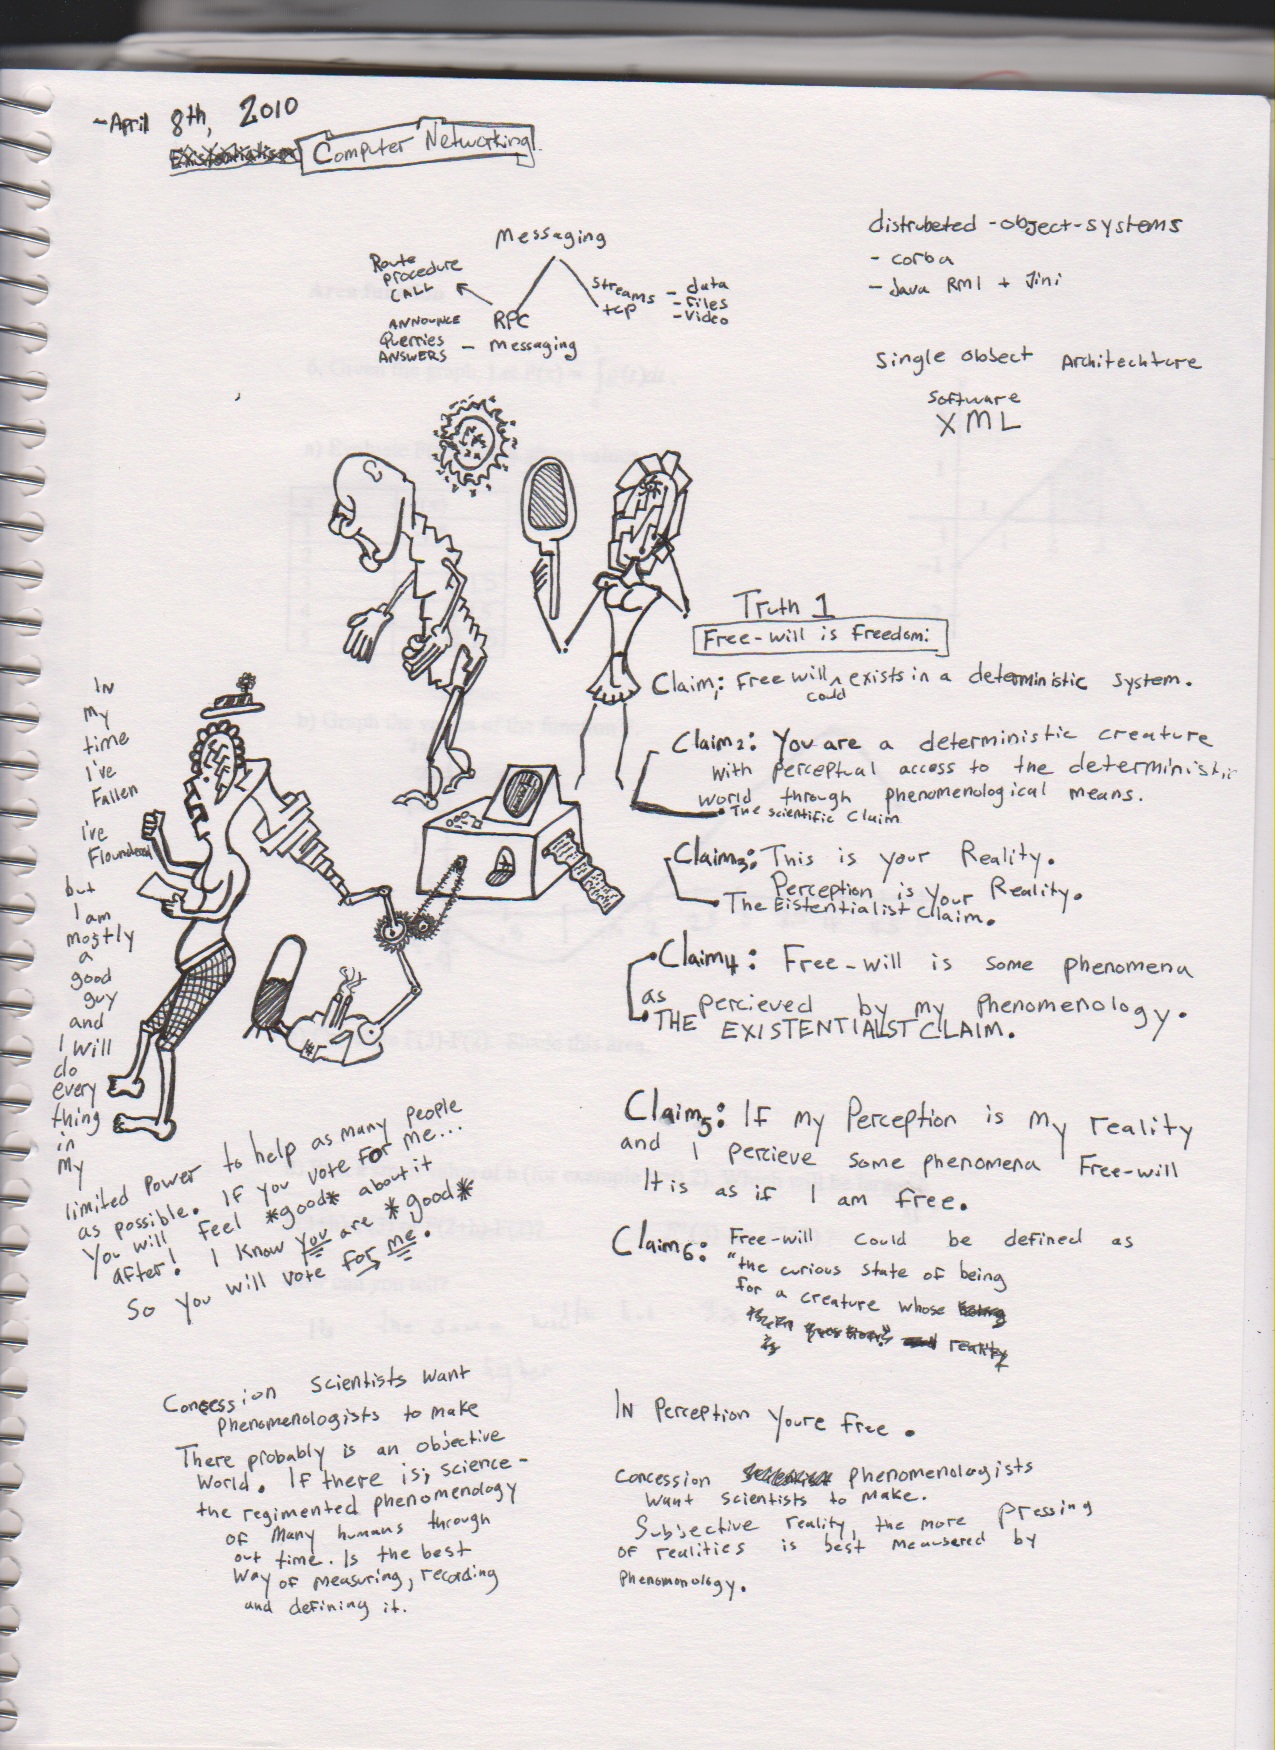 ~April 8th, 2010
Existentialism Computer Networking.
Messaging
Route
Procedure
CALL
RPC
Streams
tcp
- data
- Files
- Video
ANNOUNCE
Querries
ANSWERS - Messaging
distrubeted -object-systems
- corba
- Java RMI + Jini
Single object Architechture
Software
XML
Truth 1
Free-will is Freedom:
Claim1: Free will ^ exists in a deterministic system.
could
Claim2: You are a deterministic creature
with perceptual access to the deterministic
world through phenomenological means.
• The scientific Claim
Claim3: This is your Reality.
Perception is your Reality.
The Eistentialist Claim.
Claim4: Free-will is some phenomena
as percieved by my phenomenology.
THE EXISTENTIALIST CLAIM.
Claim5: If my Perception is my reality
and I percieve some phenomena Free-will
It is as if I am free.
Claim6: Free-will could be defined as
"the curious state of being
for a creature whose being
is in question" and reality
is
In Perception youre free.
Concession phenomenologists
want scientists to make.
Subjective reality, the more pressing
of realities is best meausered by
Phenomonology.
In
my
time
I've
Fallen
I've
Floundered
but
I am
mostly
a
good
guy
and
I will
do
every
thing
in
my
limited power to help as many people
as possible. If you vote for me...
You will feel *good* about it
after! I know you are *good*
So you will vote for me.
Concession Scientists want
phenomenologists to make
There probably is an objective
world. If there is; science -
the regimented phenomenology
of many humans through
out time. Is the best
way of measuring, recording
and defining it.